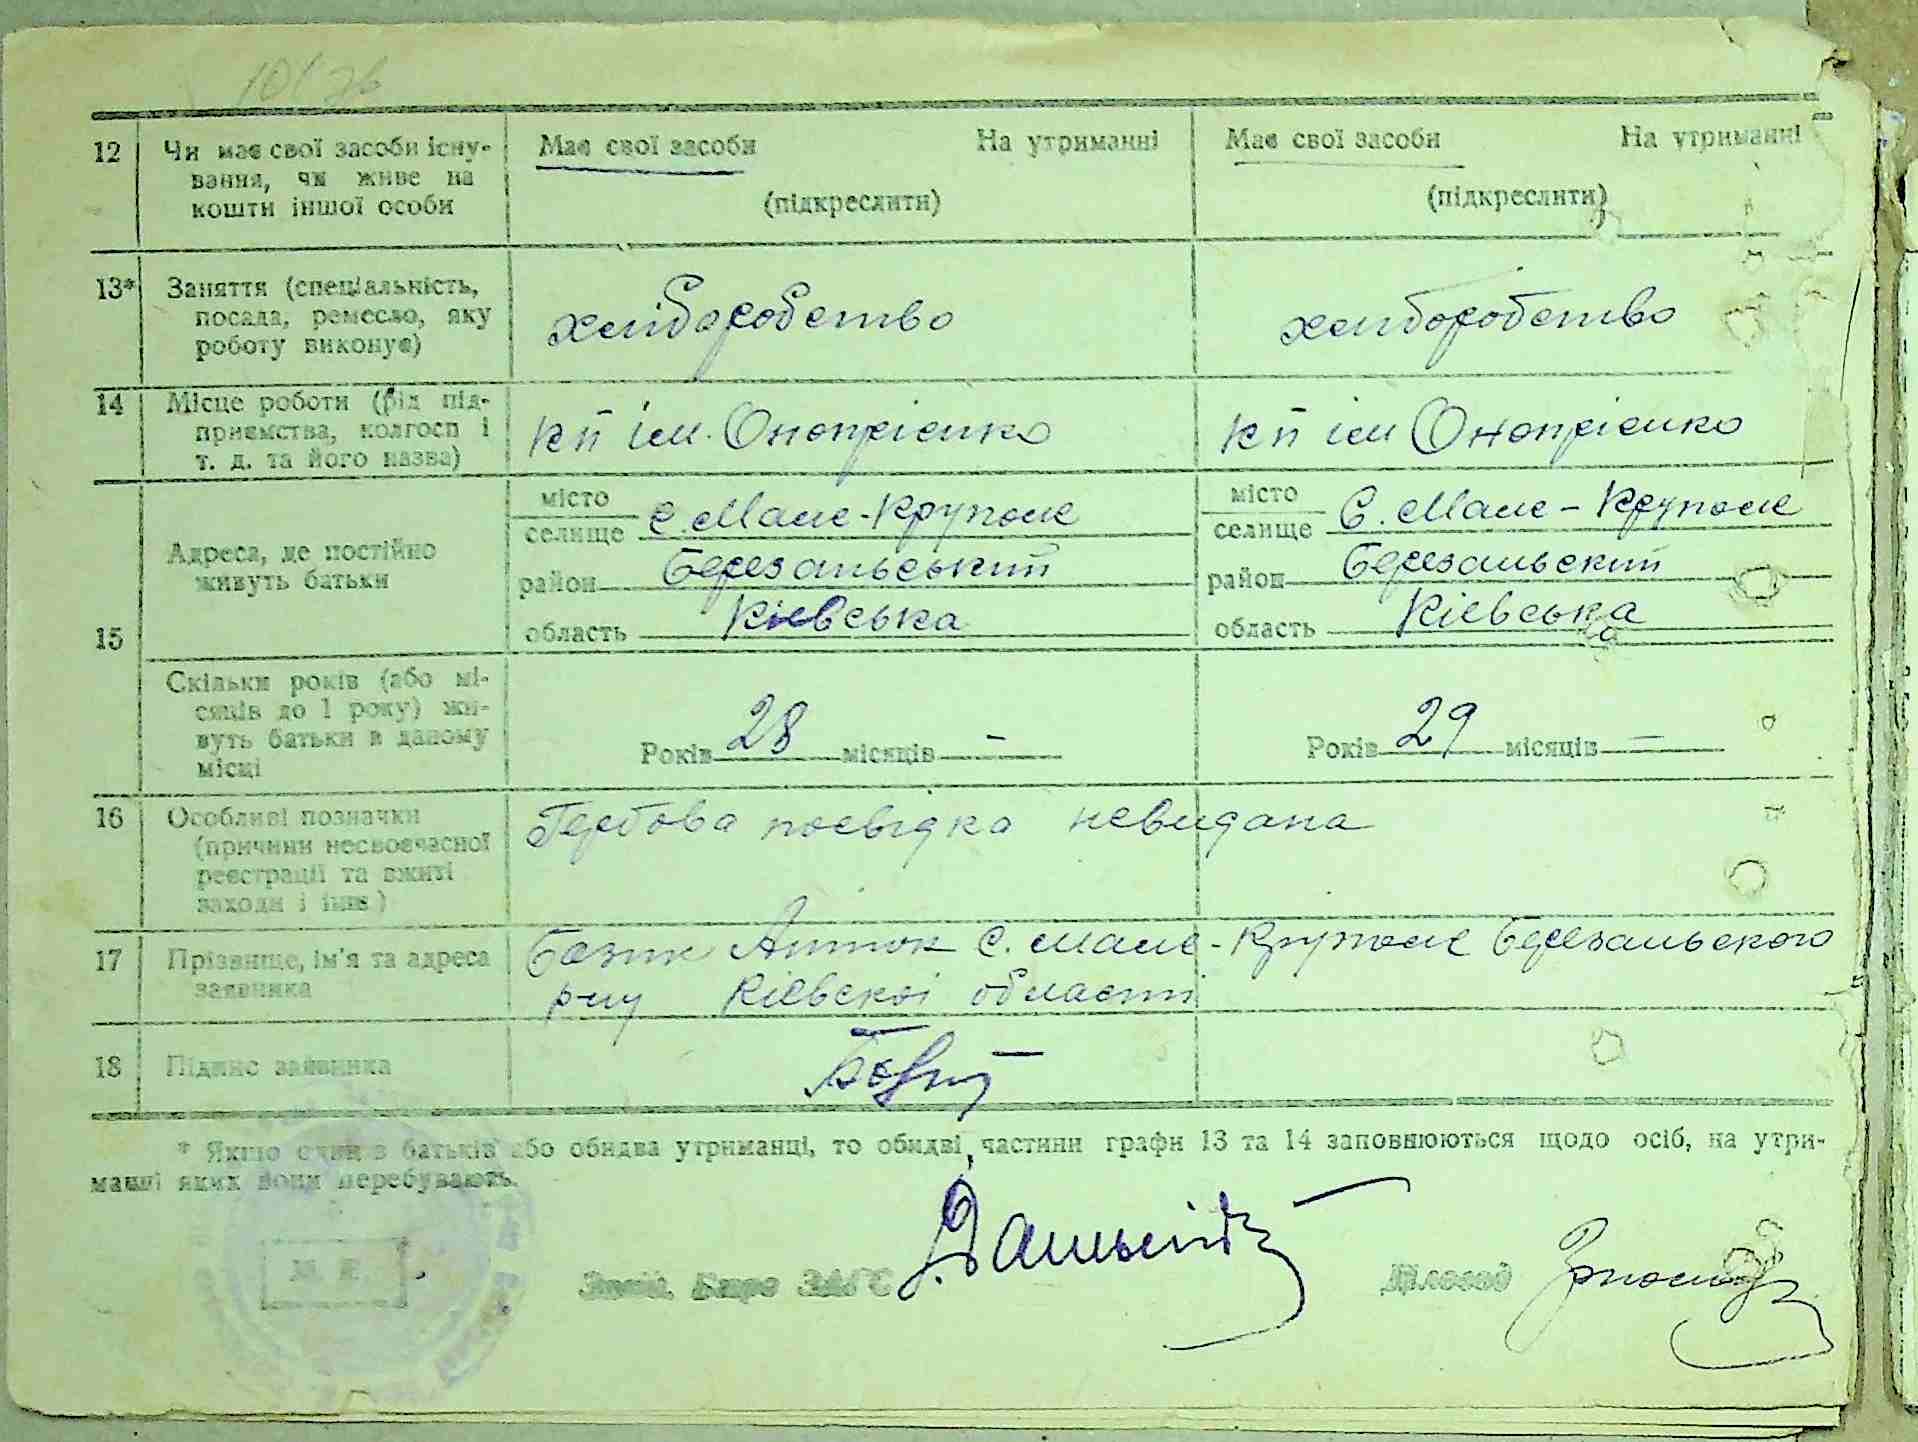 12 Чи має свої засоби існу- Має свої засоби На утриманні Має свої засоби На утриманні
вання, чи живе на
кошти іншої особи (підкреслити) (підкреслити)
13* Заняття (спеціальність,
посада, ремесло, яку хліборобство хліборобство
роботу виконує)
14 Місце роботи (рід під-
приємства, колгосп і КП ім. Онопрієнко КП ім Онопрієнко
т. д. та його назва)
15 Адреса, де постійно
живуть батьки
місто
селище с. Мале-Крупольє
район Березаньський
область Кієвська
місто
селище С. Мале-Крупольє
район Березаньский
область Кієвська
Скільки років (або мі-
сяців до 1 року) жи-
вуть батьки в даному
місці
Років 28 місяців – Років 29 місяців –
16 Особливі позначки Гербова посвідка невидана
(причини несвоєчасної
реєстрації та вжиті
заходи і інш.)
17 Прізвище, ім'я та адреса Антон с. Мале-Крупольє Березаньского
заявника р-ну Кієвскоі області
18 Підпис заявника
* Якщо один з батьків або обидва утриманці, то обидві частини графи 13 та 14 заповнюються щодо осіб, на утри-
манні яких вони перебувають.
М. П. Бюро ЗАГС Діловод